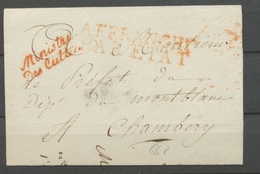 Ministre
Des Cultes
AFFRANCHI
PAR ETAT
Monsieur
le Préfet du
Dépt du montblanc
A Chambéry